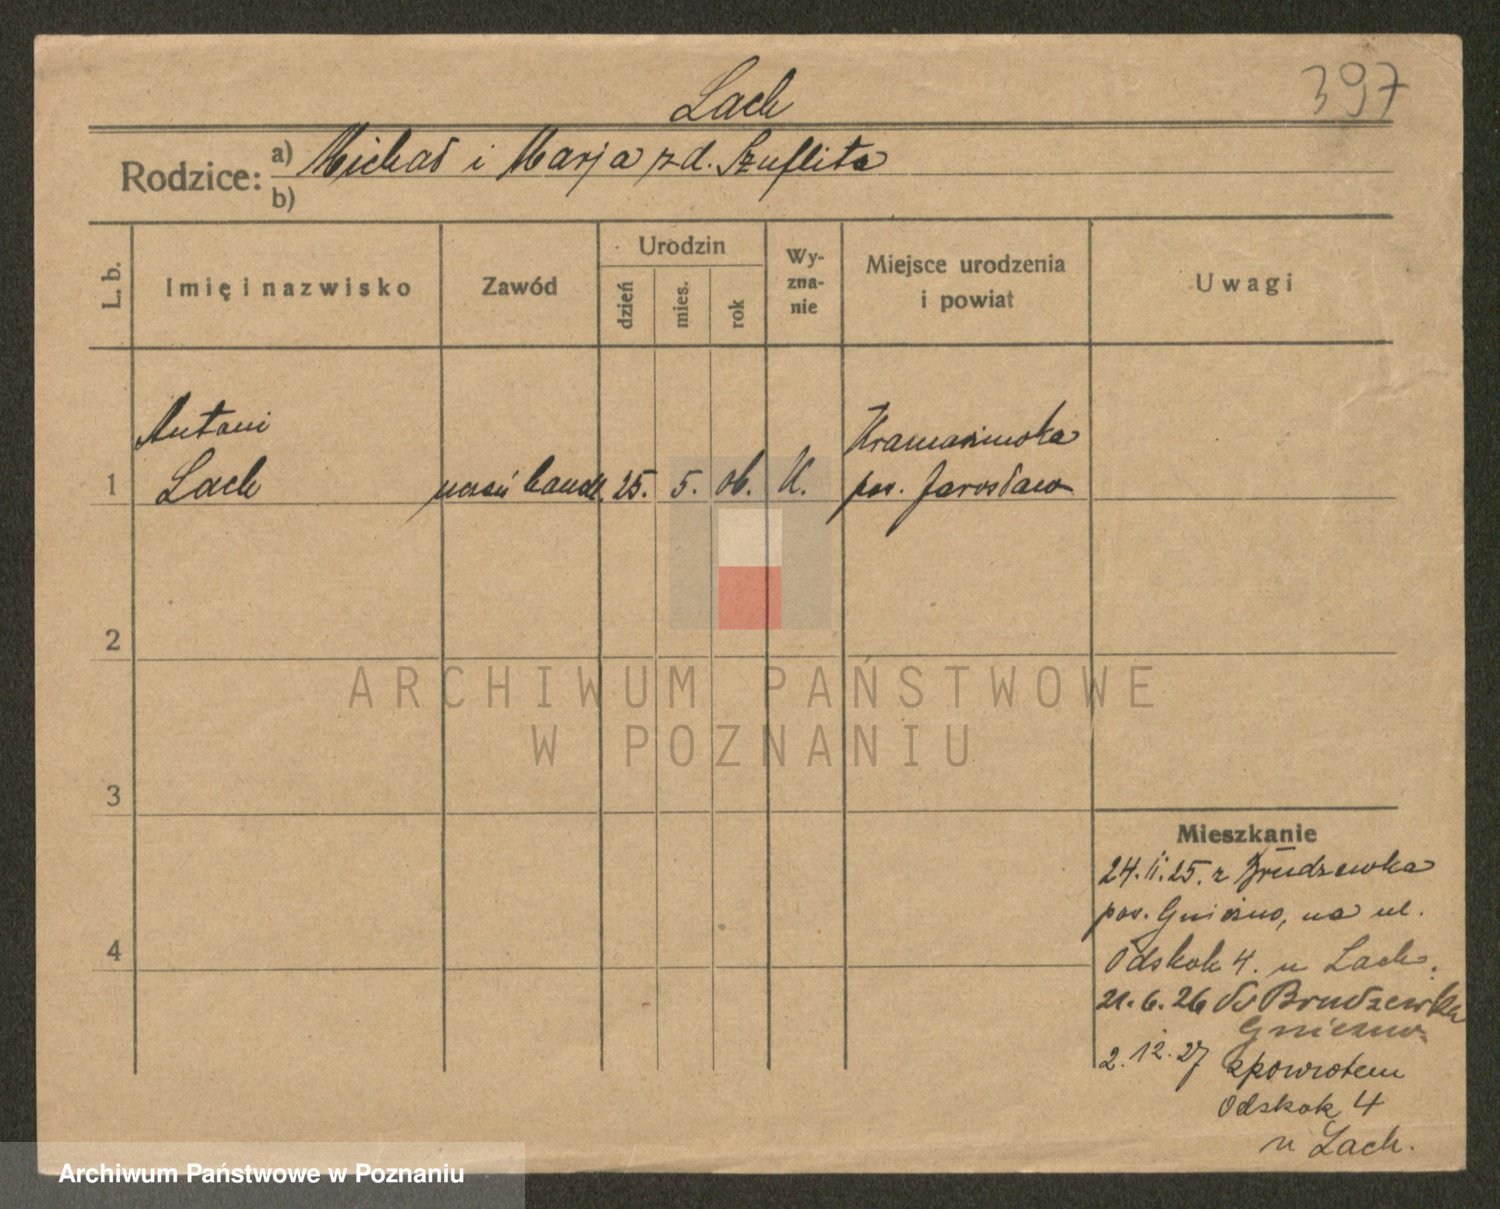 Lach
397
Rodzice: a) Michał i Marja z d. Szuflita
b)
L. b.
Imię i nazwisko
Zawód
Urodzin
dzień
mies.
rok
Wy-
zna-
nie
Miejsce urodzenia
i powiat
Uwagi
Antoni
Lach
1
uczeń handl.
25.
5.
06.
K.
pow. Jarosław
2
3
4
Mieszkanie
24.II.25. z Brudzewka
pow. Gniezno, na ul.
Odskok 4. u Lach.
21.6.26 do Brudzewka
Gniezno
2.12.27 zpowrotem
Odskok 4
u Lach.
ARCHIWUM PAŃSTWOWE
W POZNANIU
Archiwum Państwowe w Poznaniu